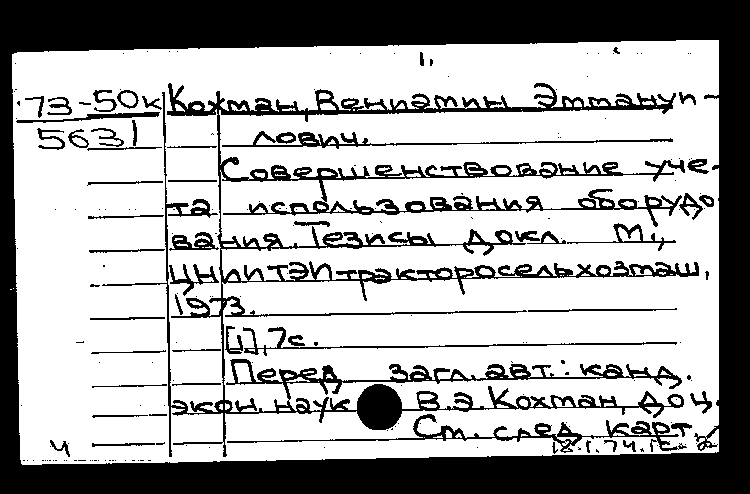 1.
73-50к Кохман, Вениамин Эммануи-
5631 лович.
Совершенствование уче-
та использования оборудо
вания. Тезисы докл. М.,
ЦНИИТЭИтракторосельхозмаш,
1973.
[1], 7с.
Перед загл. авт.: канд.
экон. наук В.Э. Кохман, доц.
См. след. карт.
4 18.1.74.